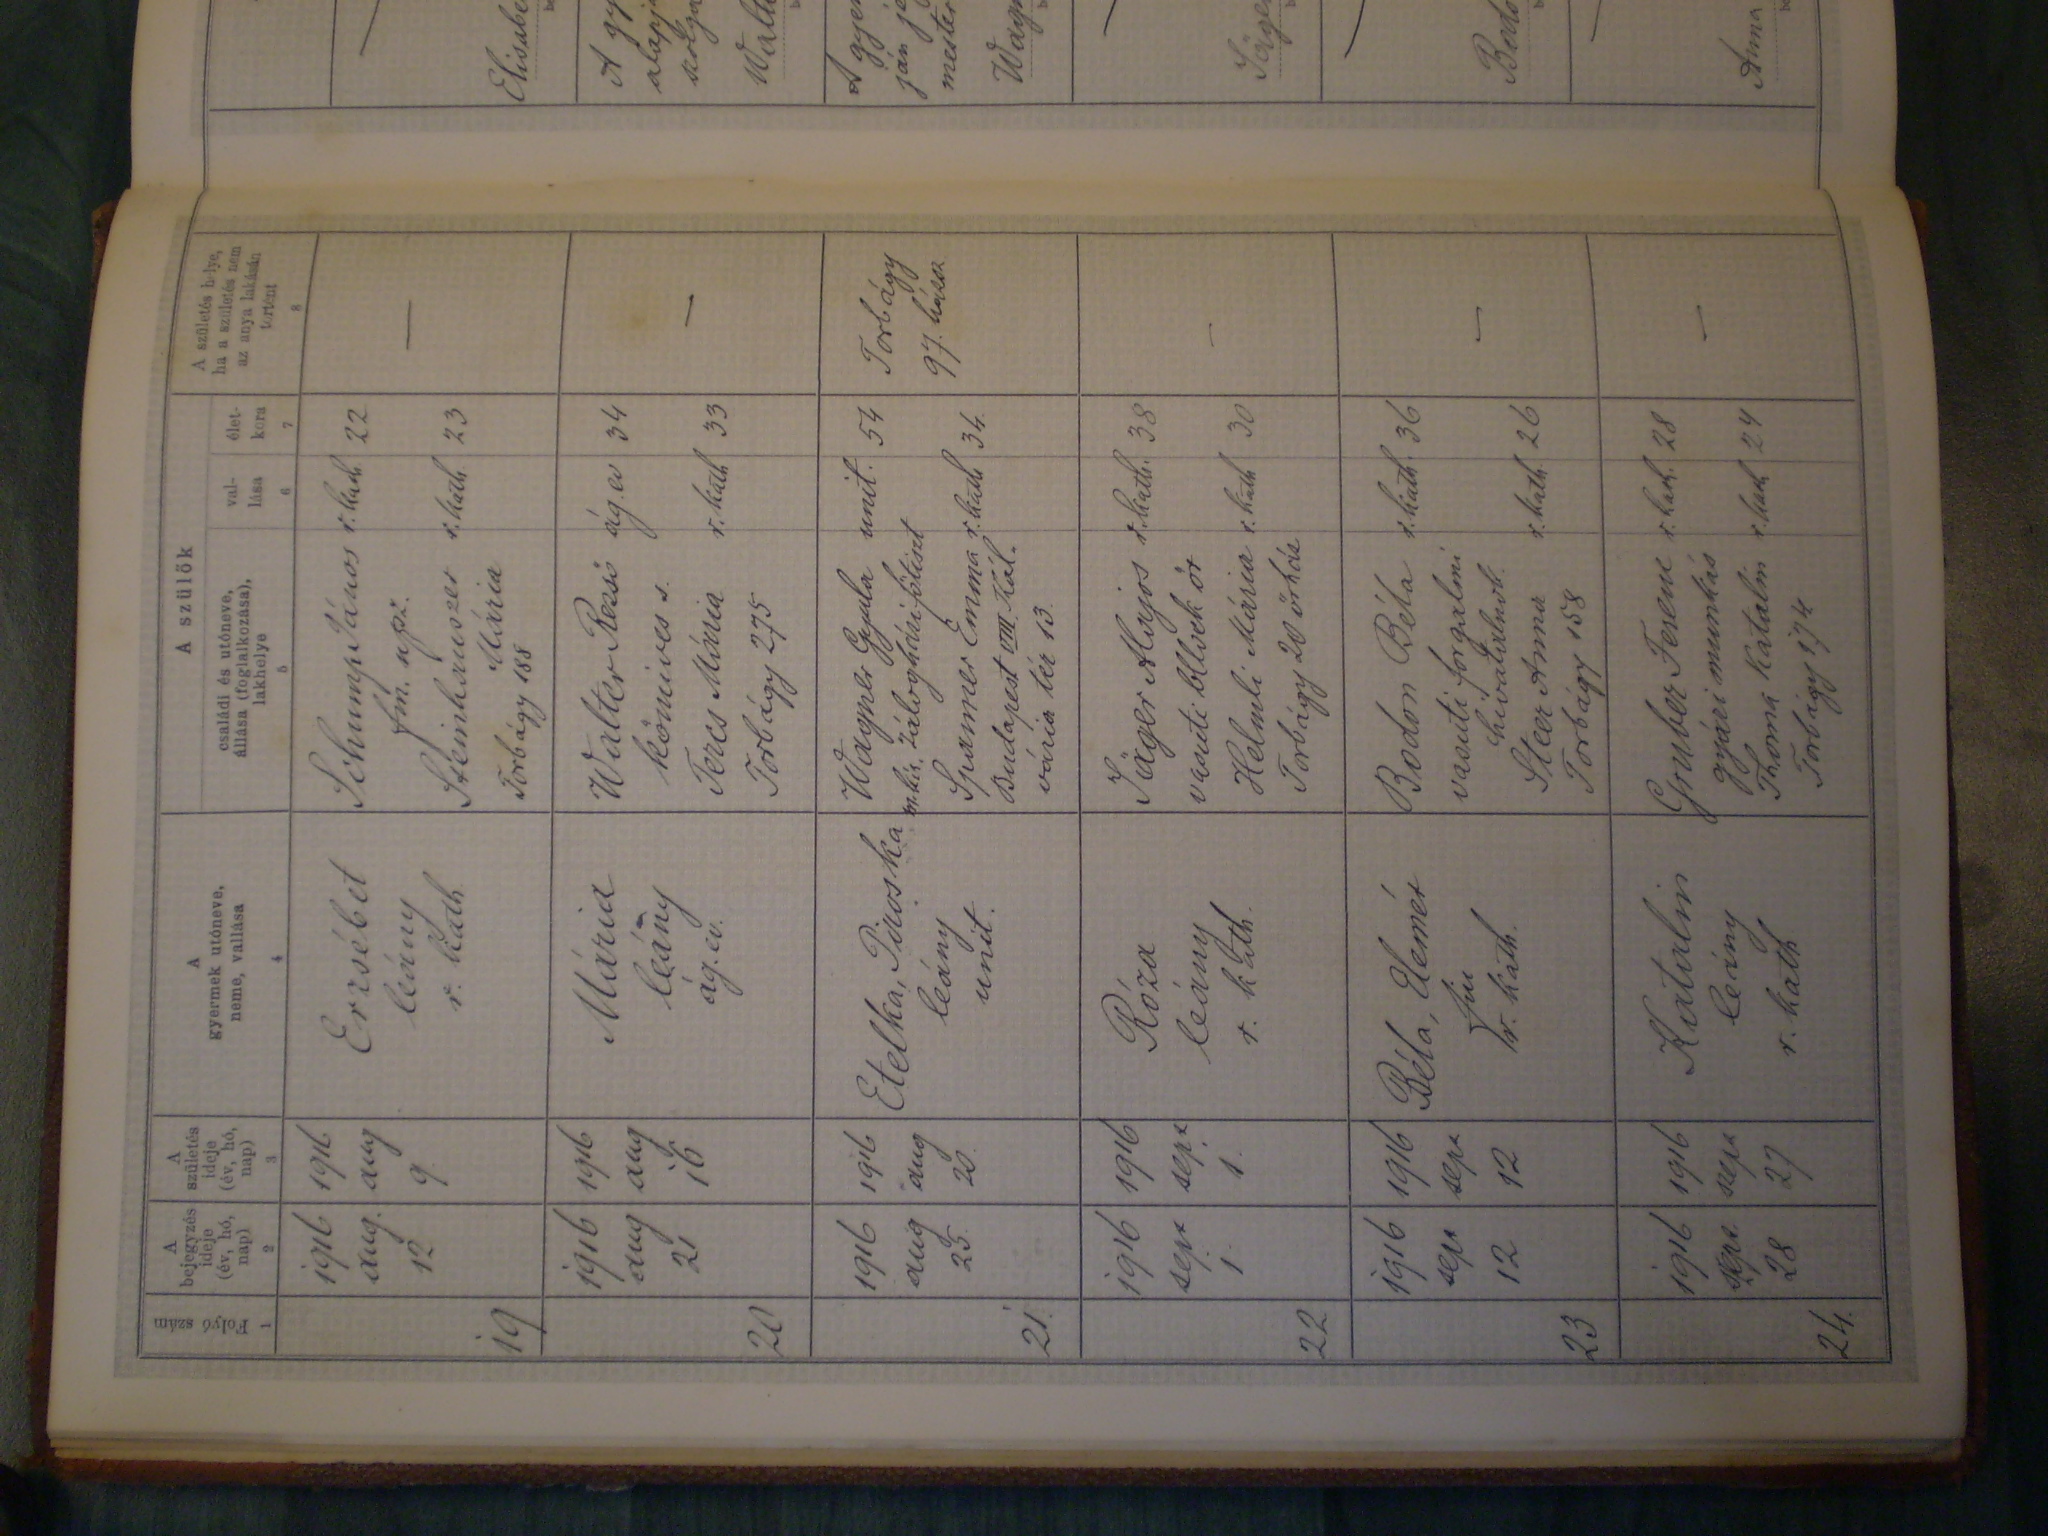 Folyó szám
1
A
bejegyzés
ideje
(év, hó,
nap)
2
A
születés
ideje
(év, hó,
nap)
3
A
gyermek utóneve,
neme, vallása
4
A szülők
családi és utóneve,
állása (foglalkozása),
lakhelye
5
val-
lása
6
élet-
kora
7
A születés helye,
ha a születés nem
az anya lakásán
történt
8
19
1916
aug.
12
1916
aug
9.
Erzsébet
leány
r. kath.
Schumpf János r. kath. 22
fm. npz.
Steinhauszer r. kath. 23
Mária
Torbágy 188
—
20
1916
aug
21
1916
aug
16
Mária
leány
ág. ev.
Walter Rezső ág. ev 34
kőmives s.
Teres Mária r. kath 33
Torbágy 275
—
21.
1916
aug
25.
1916
aug
20.
Etelka, Piroska
leány
unit.
Wagner Gyula unit. 54
m. kir. zálogházi főtiszt
Spanner Emma r. kath 34.
Budapest VIII. Kál.
vária tér 13.
Torbágy
97.ház
22
1916
sept
1.
1916
sept
1.
Róza
leány
r. kath.
Jäger Alajos r. kath. 38
vasuti blokk őr
Helmli Mária r. kath 30
Torbágy 20 őrház
—
23
1916
sept
12
1916
sept
12
Béla, Elemér
fiu
r. kath.
Bodon Béla r. kath. 36
vasuti forgalmi
hivatalnok.
Steer Anna r. kath. 26
Torbágy 158
—
24.
1916
sept.
28
1916
sept
27
Katalin
leány
r. kath
Gruber Ferenc r. kath. 28
gyári munkás
Thoma Katalin r. kath 24
Torbágy 174
—
A gyen
ján je
mester
Wagn
Jäger
Bodo
Anna